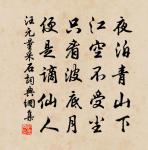 夜泊青山下
江空不受尘
只看波底月
便是谪仙人
汪元量采石词兴网集